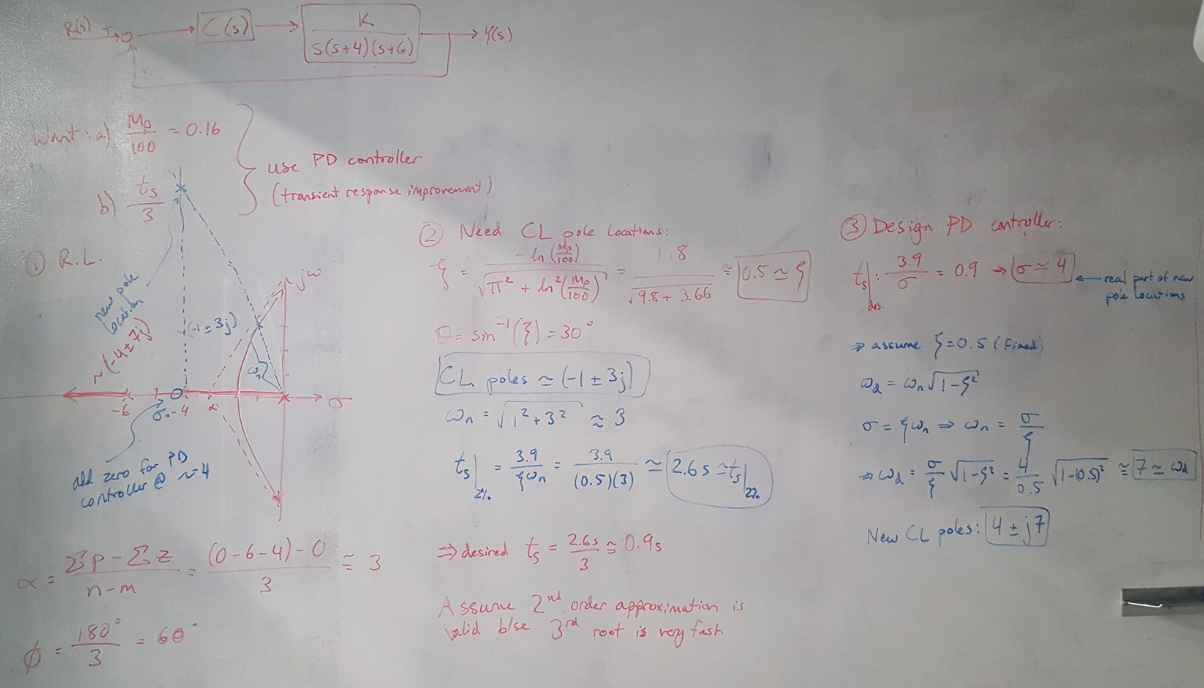 R(s) + C(s) K / s(s+4)(s+6) Y(s)
Want: a) Mp/100 = 0.16
b) ts/3
use PD controller
(transient response improvement)
① R.L.
new pole
location
~(-4±7j)
jω
(-1±3j)
ωn
-6 -4 α σ
add zero for PD
controller @ ~-4
α = Σp - Σz / n-m = (0-6-4)-0 / 3 ≅ 3
φ = 180° / 3 = 60°
② Need CL pole locations:
ξ = -ln(Mp/100) / √(π² + ln²(Mp/100)) = 1.8 / √(9.8 + 3.66) ≅ 0.5 ≃ ξ
θ = sin⁻¹(ξ) = 30°
CL poles ≃ (-1 ± 3j)
ωn = √(1² + 3²) ≈ 3
ts|2% = 3.9 / ξωn = 3.9 / (0.5)(3) ≃ 2.6s ≃ ts|2%
⇒ desired ts = 2.6s / 3 ≃ 0.9s
Assume 2nd order approximation is
valid b/se 3rd root is very fast.
③ Design PD controller:
ts|des. : 3.9 / σ = 0.9 → σ ≃ 4 ← real part of new
pole locations
⇒ assume ξ = 0.5 (fixed)
ωd = ωn√(1-ξ²)
σ = ξωn ⇒ ωn = σ/ξ
⇒ ωd = σ/ξ √(1-ξ²) = 4/0.5 √(1-(0.5)²) ≅ 7 ≃ ωd
New CL poles: 4 ± j7